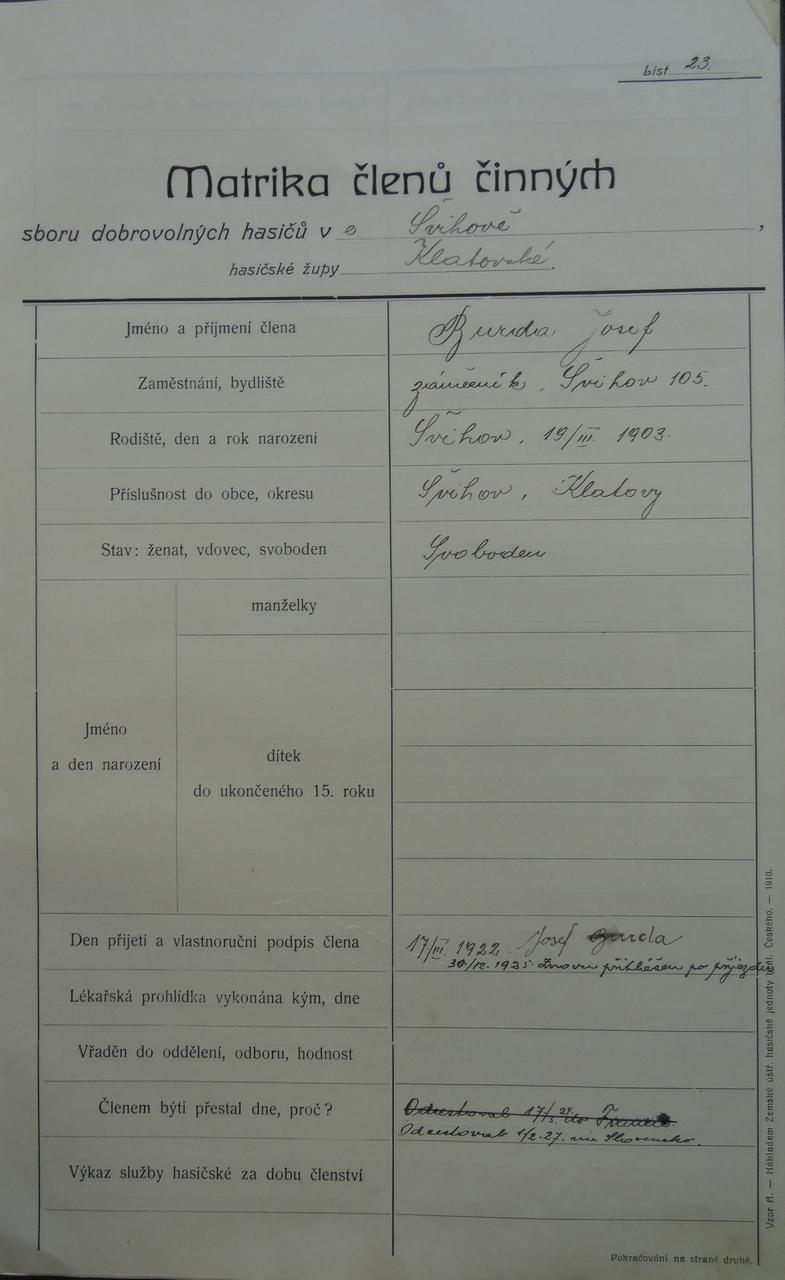 List 23.
Matrika členů činných
sboru dobrovolných hasičů v Švihově,
hasičské župy Klatovské.
Jméno a příjmení člena Burda Josef
Zaměstnání, bydliště zámečník, Švihov 105.
Rodiště, den a rok narození Švihov, 19/III. 1903.
Příslušnost do obce, okresu Švihov, Klatovy
Stav: ženat, vdovec, svoboden Svoboden
manželky
Jméno
a den narození
dítek
do ukončeného 15. roku
Den přijetí a vlastnoruční podpis člena 17/III. 1922. Josef Burda
30/12. 1925. Znovu přihlášen po příjezdu
Lékařská prohlídka vykonána kým, dne
Vřaděn do oddělení, odboru, hodnost
Členem býti přestal dne, proč? Odcestoval 17/3. 24. do Francie
Odcestoval 1/2. 27. na Slovensko.
Výkaz služby hasičské za dobu členství
Pokračování na straně druhé.
Vzor A. — Nákladem Zemské ústř. hasičské jednoty král. Českého. — 1910.